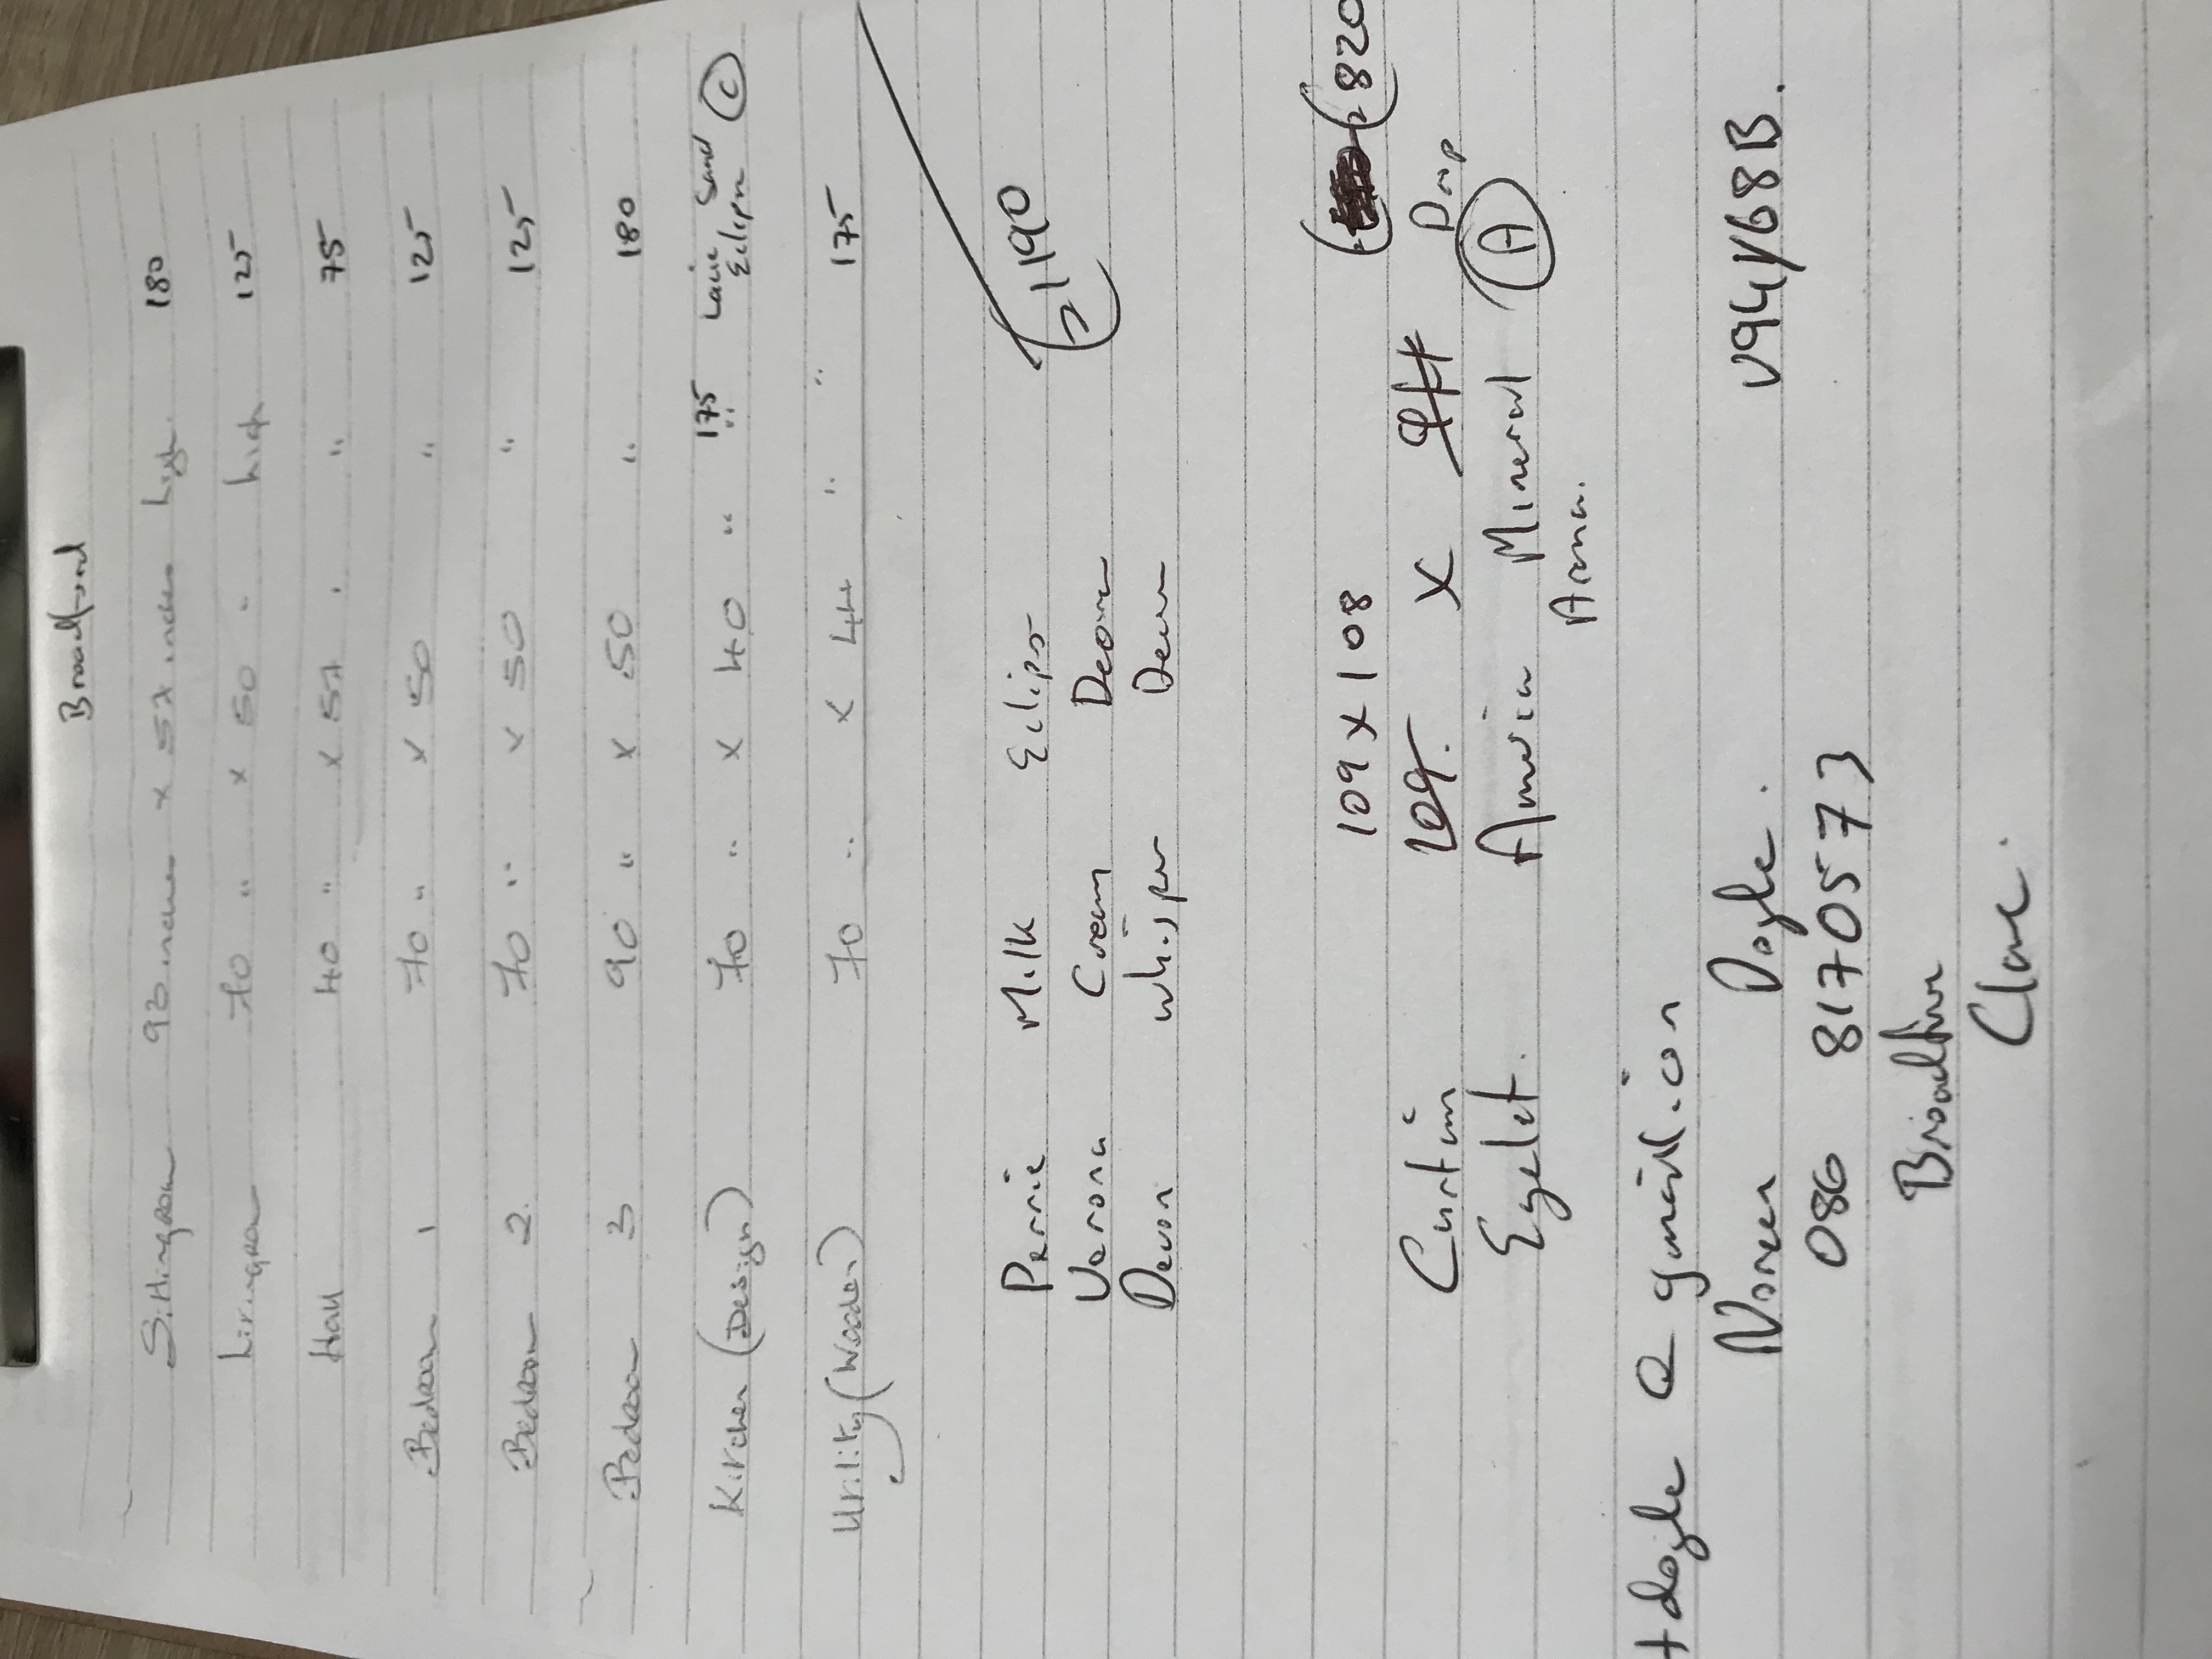 Broadford
Sittingroom 93 inches x 52 inches high. 180
Livingroom 70 " x 50 " high 125
Hall 40 " x 52 " " 75
Bedroom 1 70 " x 50 " 125
Bedroom 2. 70 " x 50 " 125
Bedroom 3 90 " x 50 " 180
Kitchen (Design) 70 " x 40 " 175 " Sand Eclipse (C)
Utility (Wooden) 70 " x 44 " " 175
Perrie Milk Eclipse 1190
Verona Cream
Devon Whisper
109 x 108 820
Curtain 109. x Drop
Eyelet. Mineral (A)
tdoyle @ gmail.con
Noreen Doyle. V94Y68B.
086 8170573
Broadford
Clare.